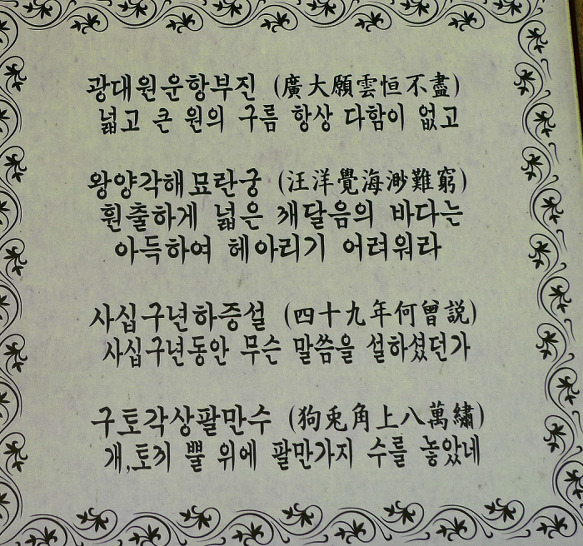 광대원운항부진 (廣大願雲恒不盡)
넓고 큰 원의 구름 항상 다함이 없고
왕양각해묘란궁 (汪洋覺海渺難窮)
훤출하게 넓은 깨달음의 바다는
아득하여 헤아리기 어려워라
사십구년하증설 (四十九年何曾説)
사십구년동안 무슨 말씀을 설하셨던가
구토각상팔만수 (狗兎角上八萬繡)
개,토끼 뿔 위에 팔만가지 수를 놓았네